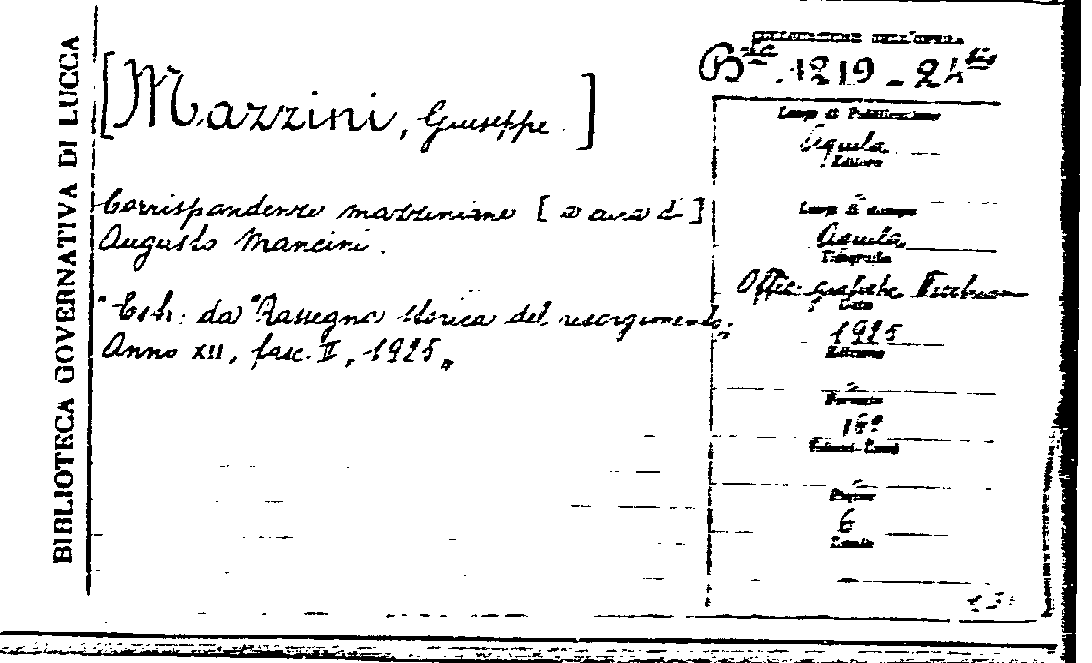 BIBLIOTECA GOVERNATIVA DI LUCCA
[Mazzini, Giuseppe.]
Corrispondenze mazziniane [a cura di]
Augusto Mancini.
"Estr. da "Rassegna storica del risorgimento;
Anno XII, fasc. II, 1925"
COLLOCAZIONE DELL'OPERA
B.ta 1219 - 24 bis
Luogo di Pubblicazione
Aquila
Editore
-
Luogo di stampa
Aquila
Tipografia
Offic. grafiche
Data
1925
Edizione
-
Formato
16º
Volumi
-
Pagine
6